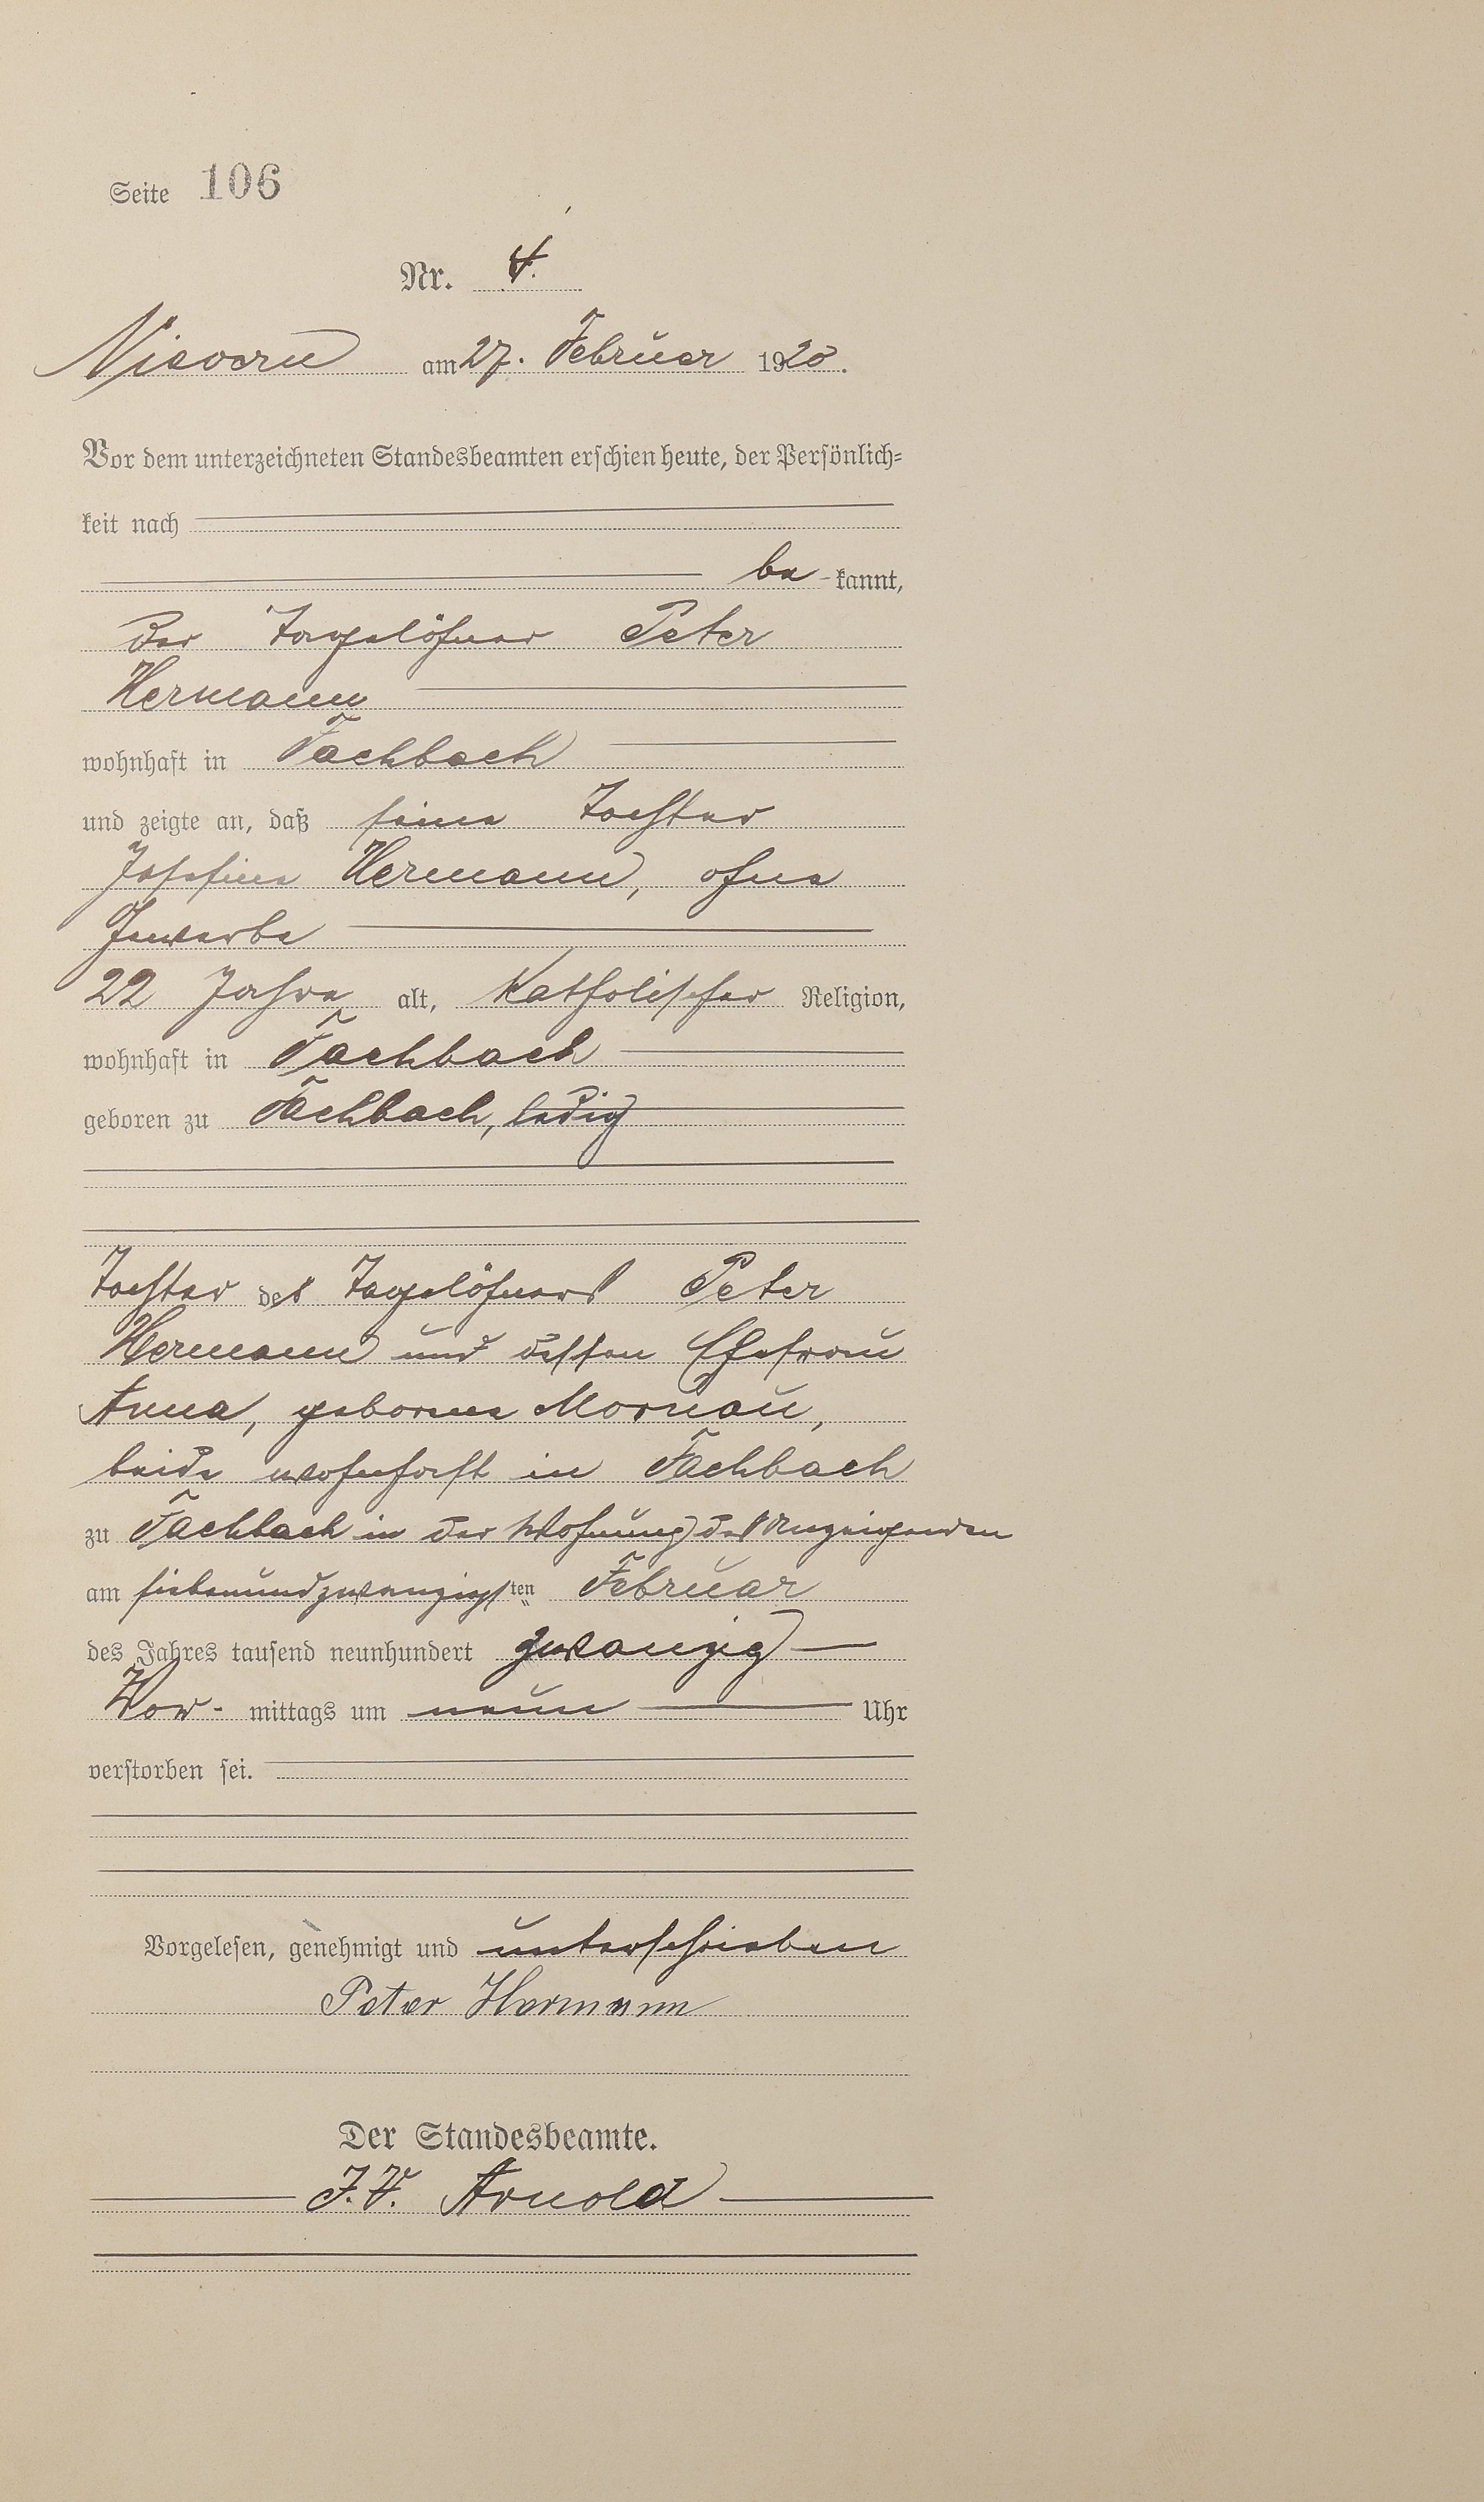 Seite 106
Nr. 4.
Nievern am 27. Februar 1920.
Vor dem unterzeichneten Standesbeamten erschien heute, der Persönlich-
keit nach
be-kannt,
der Tagelöhner Peter
Hermann
wohnhaft in Fachbach
und zeigte an, daß seine Tochter
Josefine Hermann, ohne
Gewerbe
22 Jahre alt, katholischer Religion,
wohnhaft in Fachbach
geboren zu Fachbach, ledig
Tochter des Tagelöhners Peter
Hermann und dessen Ehefrau
Anna, geborene Mornau,
beide wohnhaft in Fachbach
zu Fachbach in der Wohnung des Anzeigenden
am siebenundzwanzigsten Februar
des Jahres tausend neunhundert zwanzig
Vor-mittags um neun Uhr
verstorben sei.
Vorgelesen, genehmigt und unterschrieben
Peter Hermann
Der Standesbeamte.
J. V. Arnold